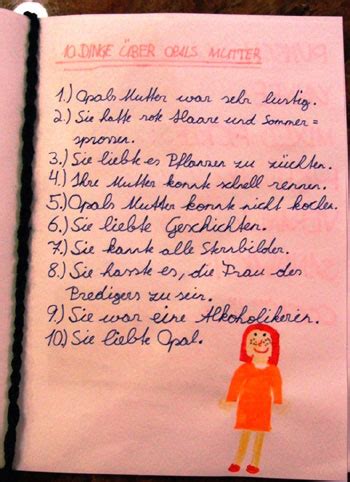 10 DINGE ÜBER OPALS MUTTER
1.) Opals Mutter war sehr lustig.
2.) Sie hatte rote Haare und Sommer=
sprossen.
3.) Sie liebte es Pflanzen zu züchten.
4.) Ihre Mutter konnte schnell rennen.
5.) Opals Mutter konnte nicht kochen.
6.) Sie liebte Geschichten.
7.) Sie kannte alle Sternbilder.
8.) Sie hasste es, die Frau des
Predigers zu sein.
9.) Sie war eine Alkoholikerin.
10.) Sie liebte Opal.